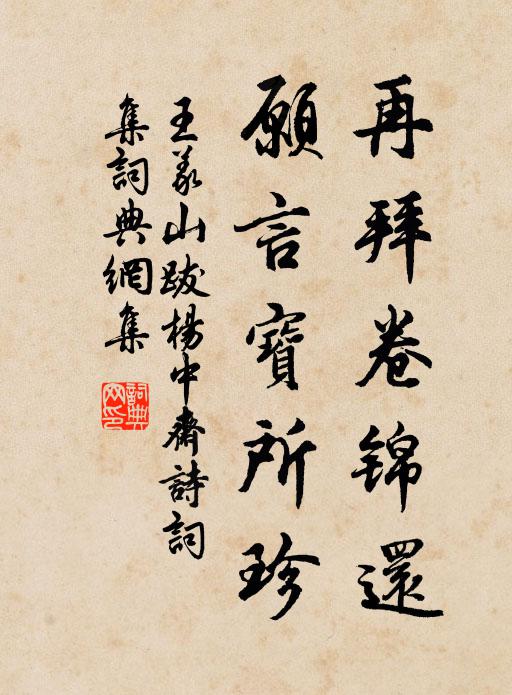 再拜卷錦還
願言寶所珍
王義山跋楊中齋詩詞
集詞典網集
詞典網印